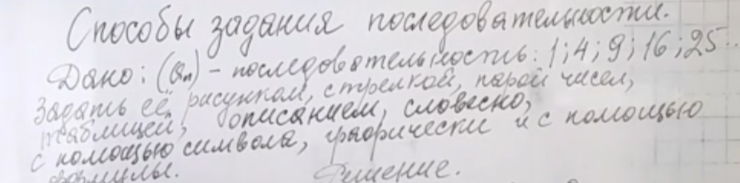 Способы задания последовательности.
Дано: (aₙ) - последовательность: 1; 4; 9; 16; 25...
Задать её рисунком, стрелкой, парой чисел,
таблицей, описанием, словесно,
с помощью символа, графически и с помощью
формулы. Решение.